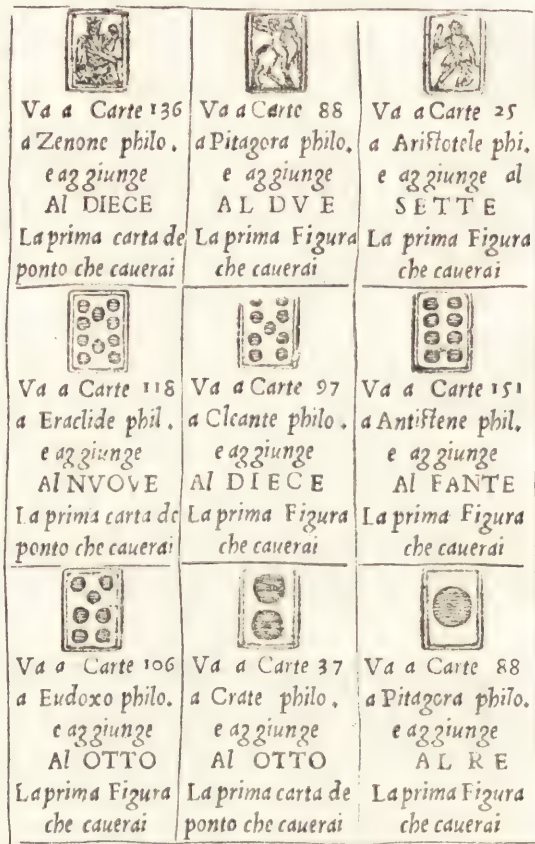 Va a Carte 136
a Zenone philo.
e aggiunge
Al DIECE
La prima carta de
ponto che cauerai
Va a Carte 88
a Pitagora philo.
e aggiunge
AL DVE
La prima Figura
che cauerai
Va a Carte 25
a Aristotele phi.
e aggiunge al
SETTE
La prima Figura
che cauerai
Va a Carte 118
a Eraclide phil.
e aggiunge
Al NVOVE
La prima carta de
ponto che cauerai
Va a Carte 97
a Cleante philo.
e aggiunge
Al DIECE
La prima Figura
che cauerai
Va a Carte 151
a Antistene phil.
e aggiunge
Al FANTE
La prima Figura
che cauerai
Va a Carte 106
a Eudoxo philo.
e aggiunge
Al OTTO
La prima Figura
che cauerai
Va a Carte 37
a Crate philo.
e aggiunge
Al OTTO
La prima carta de
ponto che cauerai
Va a Carte 88
a Pitagora philo.
e aggiunge
AL RE
La prima Figura
che cauerai